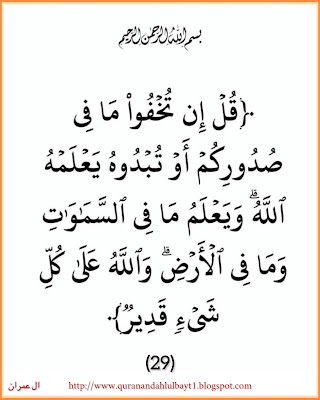 بسم الله الرحمن الرحيم
.{قُلۡ إِن تُخۡفُواْ مَا فِي
صُدُورِكُمۡ أَوۡ تُبۡدُوهُ يَعۡلَمۡهُ
ٱللَّهُۗ وَيَعۡلَمُ مَا فِي ٱلسَّمَٰوَٰتِ
وَمَا فِي ٱلۡأَرۡضِۗ وَٱللَّهُ عَلَىٰ كُلِّ
شَيۡءٖ قَدِيرٞ}.
(29)
ال عمران http://www.quranandahlulbayt1.blogspot.com